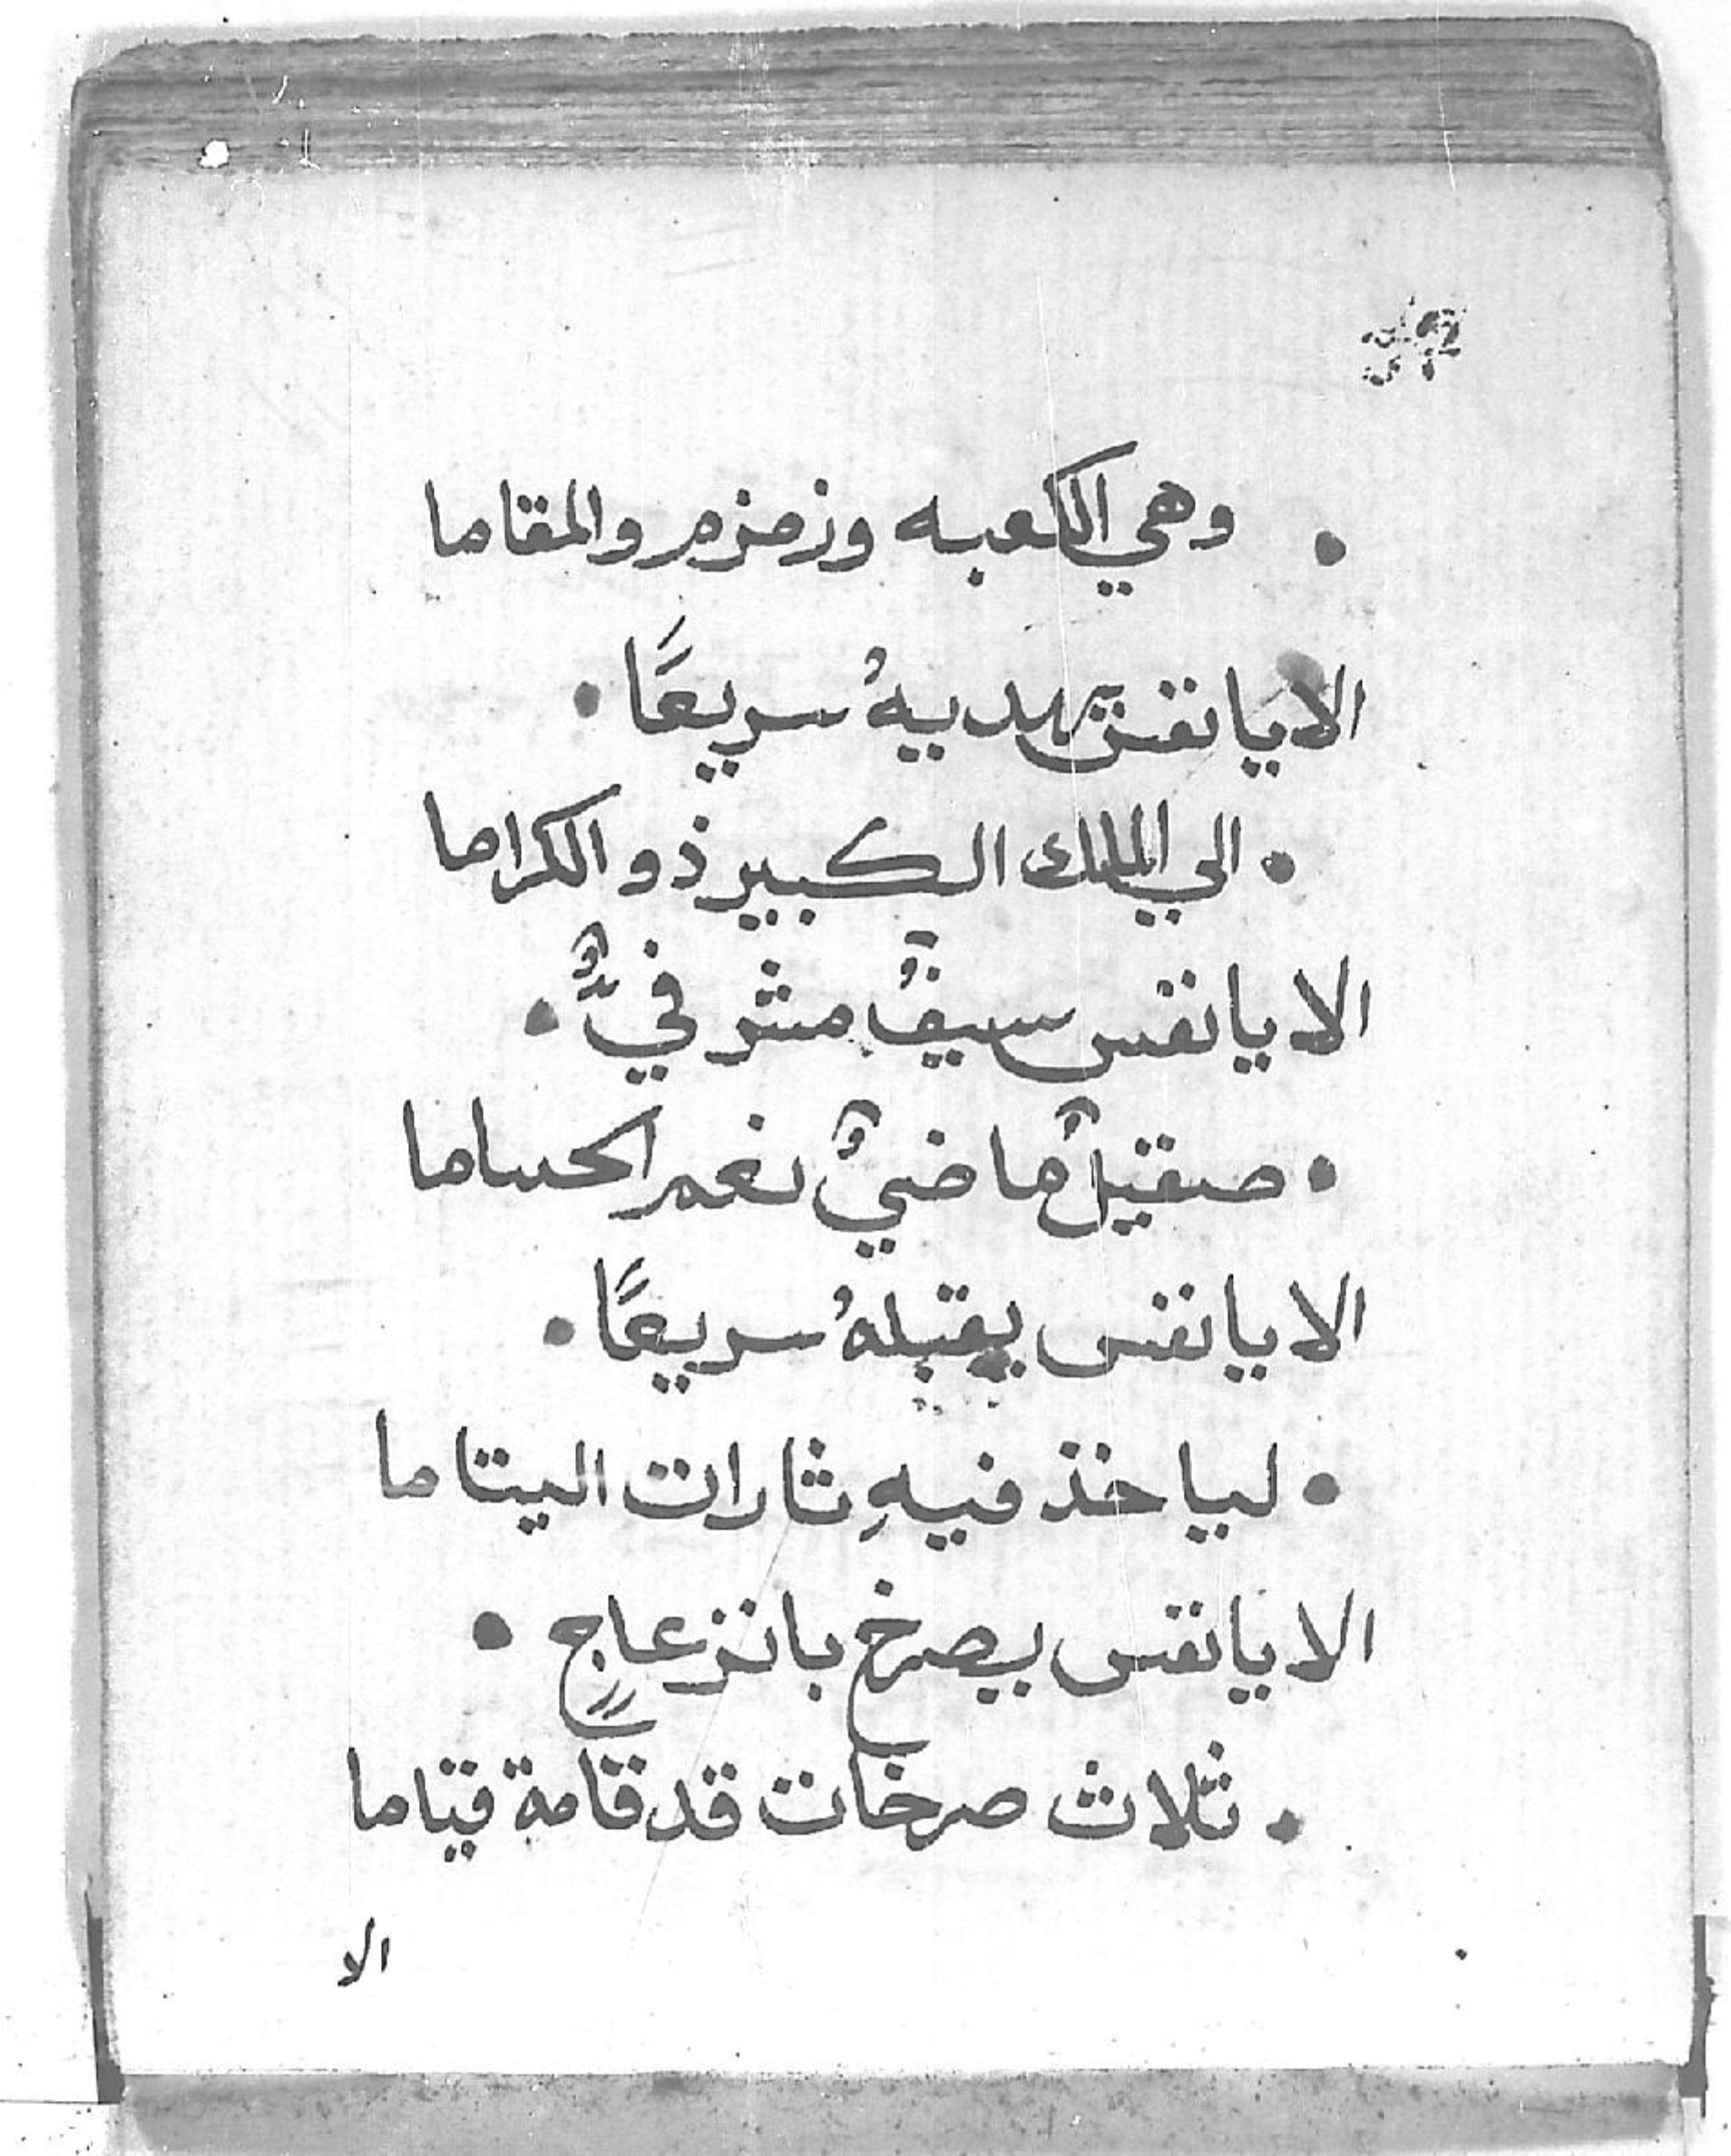 • وهي الكعبه وزمزم والمقاما
الا يا نفس تهديهُ سريعًا •
• الي الملك الكبير ذو الكراما
الا يا نفس سيفٌ مشرفيٌّ •
• صقيلٌ ماضيٌ نعم الحساما
الا يا نفس يقبلهُ سريعًا •
• لياخذ فيهِ ثارات اليتاما
الا يا نفس يصرخ بانزعاجٍ •
• ثلاث صرخات قد قامة قياما
الا